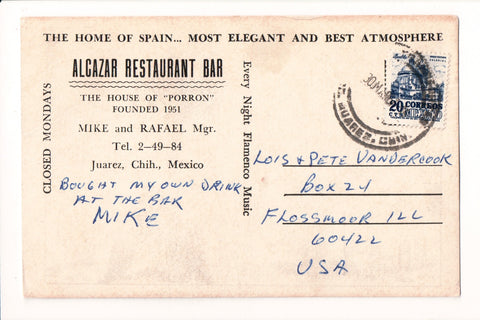 THE HOME OF SPAIN... MOST ELEGANT AND BEST ATMOSPHERE
CLOSED MONDAYS
ALCAZAR RESTAURANT BAR
THE HOUSE OF "PORRON"
FOUNDED 1951
MIKE and RAFAEL Mgr.
Tel. 2-49-84
Juarez, Chih., Mexico
BOUGHT MY OWN DRINK
AT THE BAR
MIKE
Every Night Flamenco Music
20 CORREOS
JUAREZ, CHIH.
LOIS & PETE VANDERCOOK
BOX 24
FLOSSMOOR ILL
60422
USA